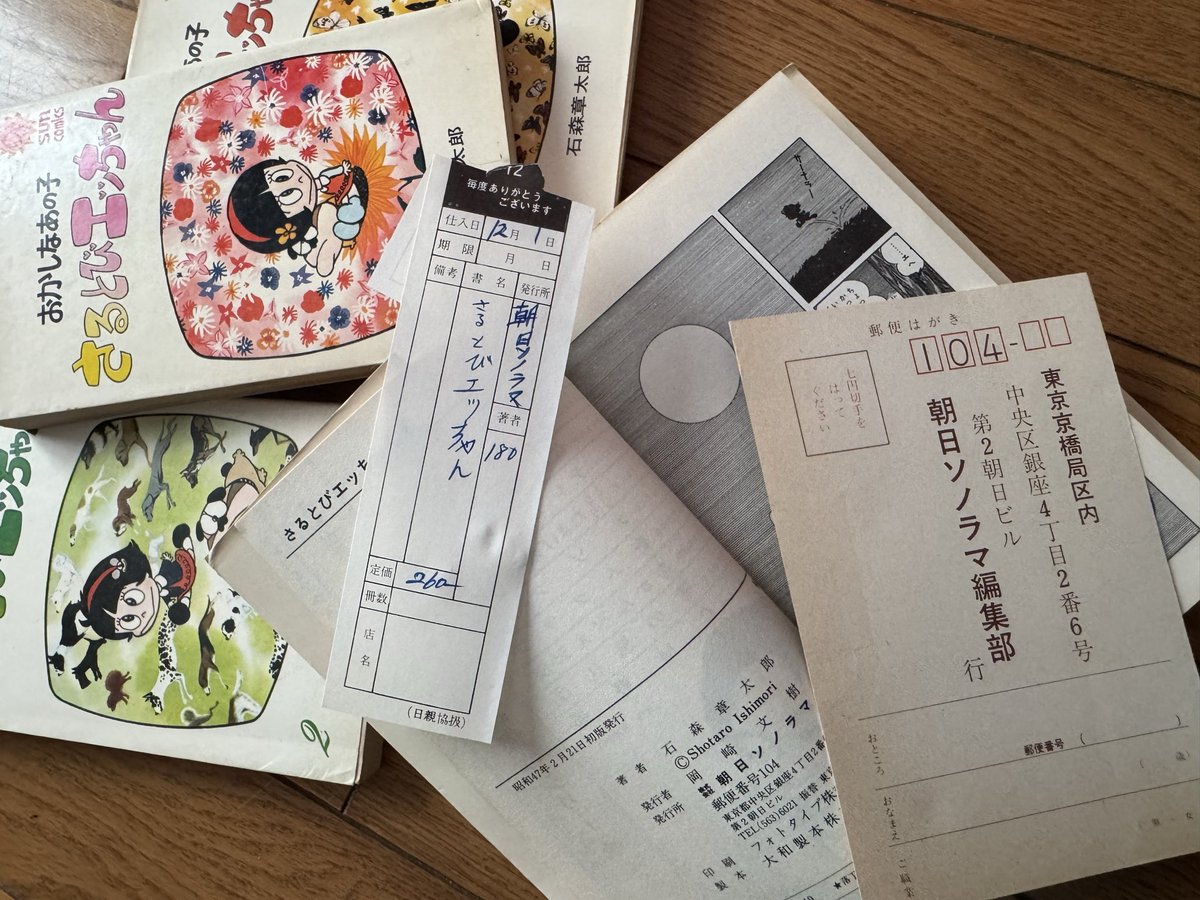 あの子
石森章太郎
sun comics
おかしなあの子
さるとびエッちゃん
太郎
2
12
毎度ありがとう
ございます
仕入日 12月1日
期限 月 日
備考 書名 発行所
朝日ソノラマ
さるとびエッちゃん
著者
180
定価 260
冊数
店名
(日親協扱)
さるとびエッち
昭和47年2月21日初版発行
著者 石森章太郎
©Shotaro Ishimori
発行者 岡崎文樹
発行所 株式会社 朝日ソノラマ
郵便番号104
東京都中央区銀座4丁目2番
第2朝日ビル
TEL(563)6021 振替 東京
印刷 フォトタイプ株
製本 大和製本株
郵便はがき
104-
七円切手を
はって
ください
東京京橋局区内
中央区銀座4丁目2番6号
第2朝日ビル
朝日ソノラマ編集部
行
おところ
郵便番号( )
おなまえ
( 歳)
男・女
ご職業